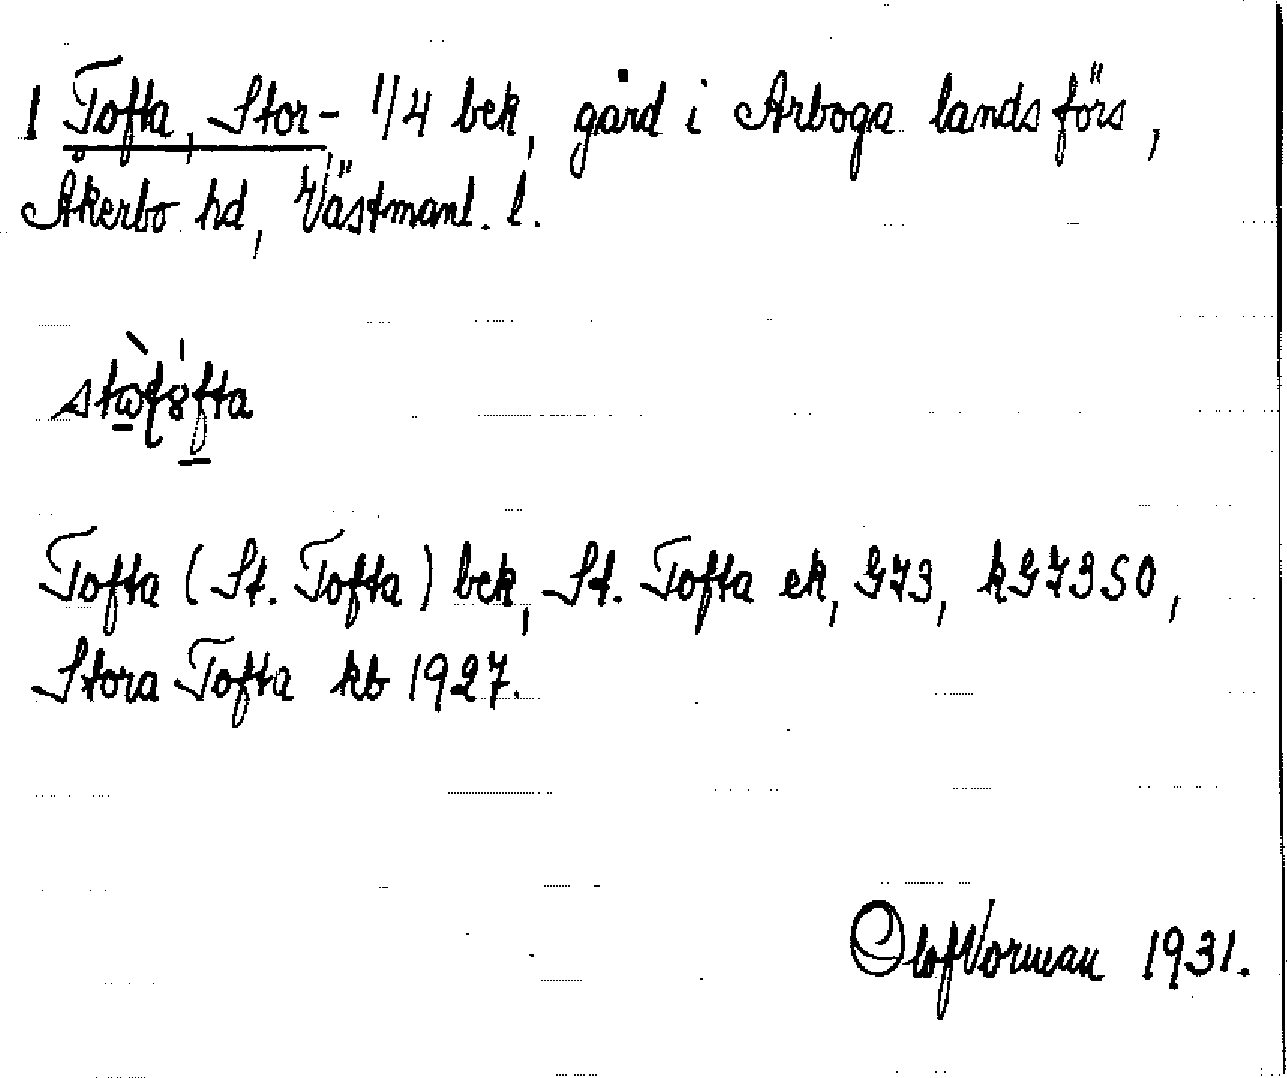 1 Tofta, Stor- 1/4 bek, gård i Arboga lands förs,
Åkerbo hd, Västmanl. l.
Tofta (St. Tofta) bek, St. Tofta ek, G73, kG7350,
Stora Tofta kb 1927.
Olof Vorman 1931.